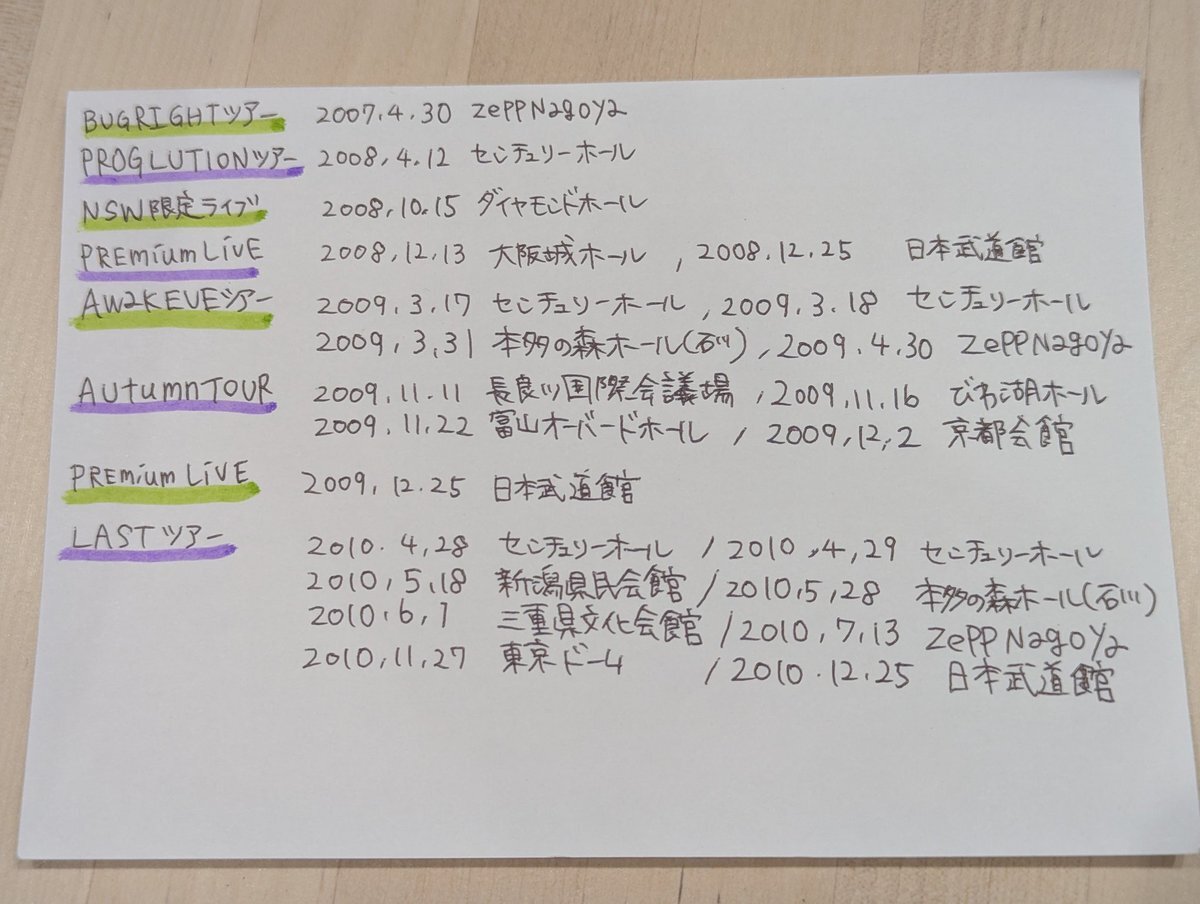 BUGRIGHTツアー 2007.4.30 ZePPNagoya
PROGLUTIONツアー 2008.4.12 センチュリーホール
NSW限定ライブ 2008.10.15 ダイヤモンドホール
PREmiumLiVE 2008.12.13 大阪城ホール , 2008.12.25 日本武道館
AwakEVEツアー 2009.3.17 センチュリーホール , 2009.3.18 センチュリーホール
2009.3.31 本多の森ホール(石川) , 2009.4.30 ZePPNagoya
AutumnTOUR 2009.11.11 長良川国際会議場 , 2009.11.16 びわ湖ホール
2009.11.22 富山オーバードホール / 2009.12.2 京都会館
PREmium LiVE 2009.12.25 日本武道館
LASTツアー 2010.4.28 センチュリーホール / 2010.4.29 センチュリーホール
2010.5.18 新潟県民会館 / 2010.5.28 本多の森ホール(石川)
2010.6.1 三重県文化会館 / 2010.7.13 ZePP Nagoya
2010.11.27 東京ドーム / 2010.12.25 日本武道館